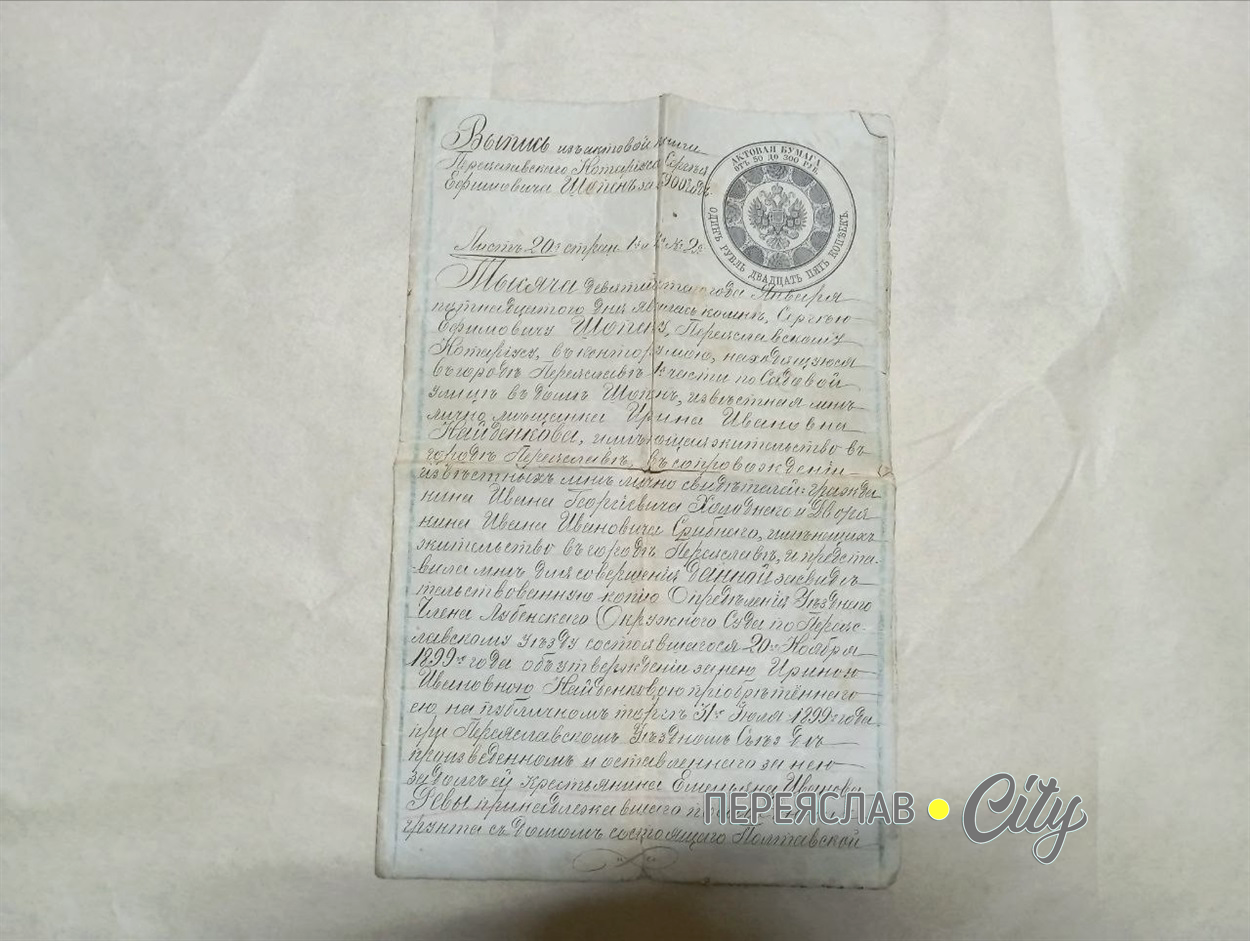 Выпись изъ актовой книги
Переяславскаго Нотаріуса Сергѣя
Ефимовича Шопенъ за 1900 годъ.
АКТОВАЯ БУМАГА
ОТЪ 50 ДО 300 РУБ.
ОДИНЪ РУБЛЬ ДВАДЦАТЬ ПЯТЬ КОПѢЕКЪ
Листъ 20 стран № 2
Тысяча девятисотаго года Января
пятнадцатого дня явилась ко мнѣ, Сергѣю
Ефимовичу Шопенъ, Переяславскому
Нотаріусу, въ контору мою, находящуюся
въ городѣ Переяславѣ части по Садовой
улицѣ въ домѣ Шопенъ, извѣстная мнѣ
лично мѣщанка Ирина Ивановна
Найденкова, имѣющая жительство въ
городѣ Переяславѣ, въ сопровожденіи
извѣстныхъ мнѣ лично свидѣтелей: гражда
нина Ивана Георгіевича и Дворя
нина Ивана Ивановича Срибнаго, имѣющихъ
жительство въ городѣ Переяславѣ, и предста-
вила мнѣ для совершенія данной засвидѣ
тельствованную копію Опредѣленія Уѣзднаго
Члена Лубенскаго Окружнаго Суда по Переяс-
лавскому уѣзду состоявшагося 20 Ноября
1899 года объ утвержденіи за нею Ириною
Ивановною Найденковою пріобрѣтеннаго
ею на публичномъ торгѣ 31 Іюля 1899 года
при Переяславскомъ Уѣздномъ Съѣздѣ
произведенномъ и оставленнаго за нею
за долгъ ей крестьянина Емельяна Иванова
Левы принадлежавшаго
грунта съ домомъ состоящаго Полтавской
ПЕРЕЯСЛАВ City